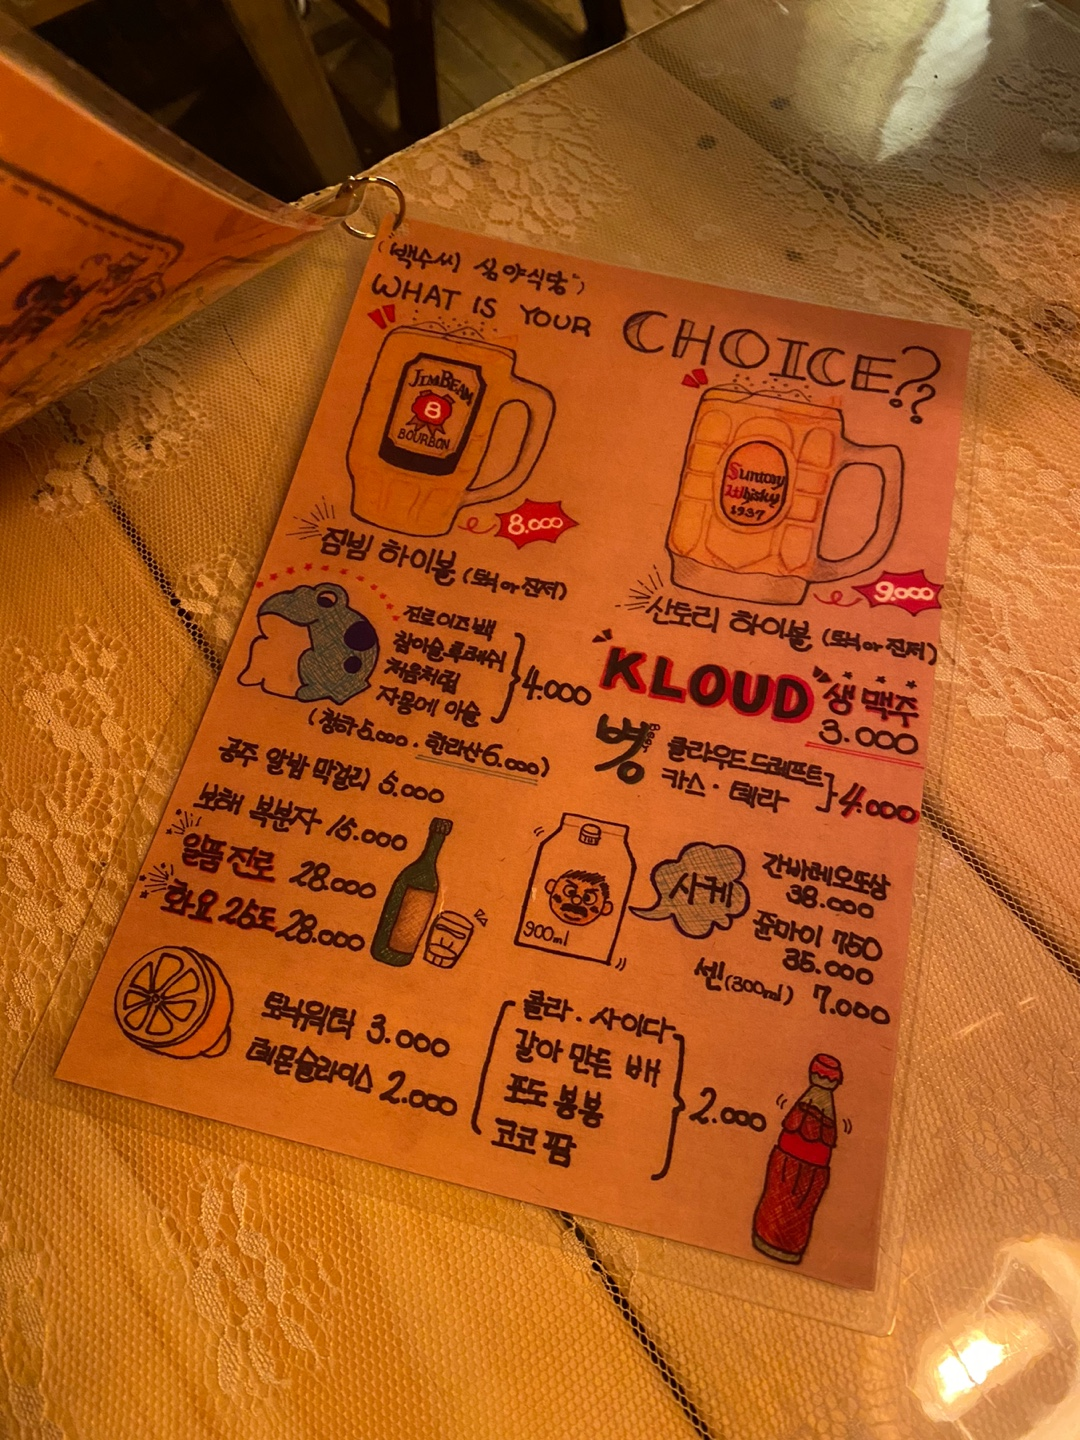 (백수씨 심야식당)
WHAT IS YOUR CHOICE??
JIM BEAM
8
BOURBON
8.000
짐빔 하이볼 (토닉 or 진저)
Suntory
Whisky
1937
9.000
산토리 하이볼 (토닉 or 진저)
진로이즈백
참이슬후레쉬
처음처럼
자몽에 이슬
4.000
(청하 5.000 · 한라산 6.000)
공주 알밤 막걸리 5.000
보해 복분자 15.000
일품진로 28.000
화요 25도 28.000
KLOUD 생맥주
3.000
병
클라우드 드래프트
카스 · 테라
4.000
900ml
사케
간바레오또상
38.000
쥰마이 750
35.000
센(300ml) 7.000
토닉워터 3.000
레몬슬라이스 2.000
콜라 · 사이다
갈아 만든 배
포도 봉봉
코코팜
2.000